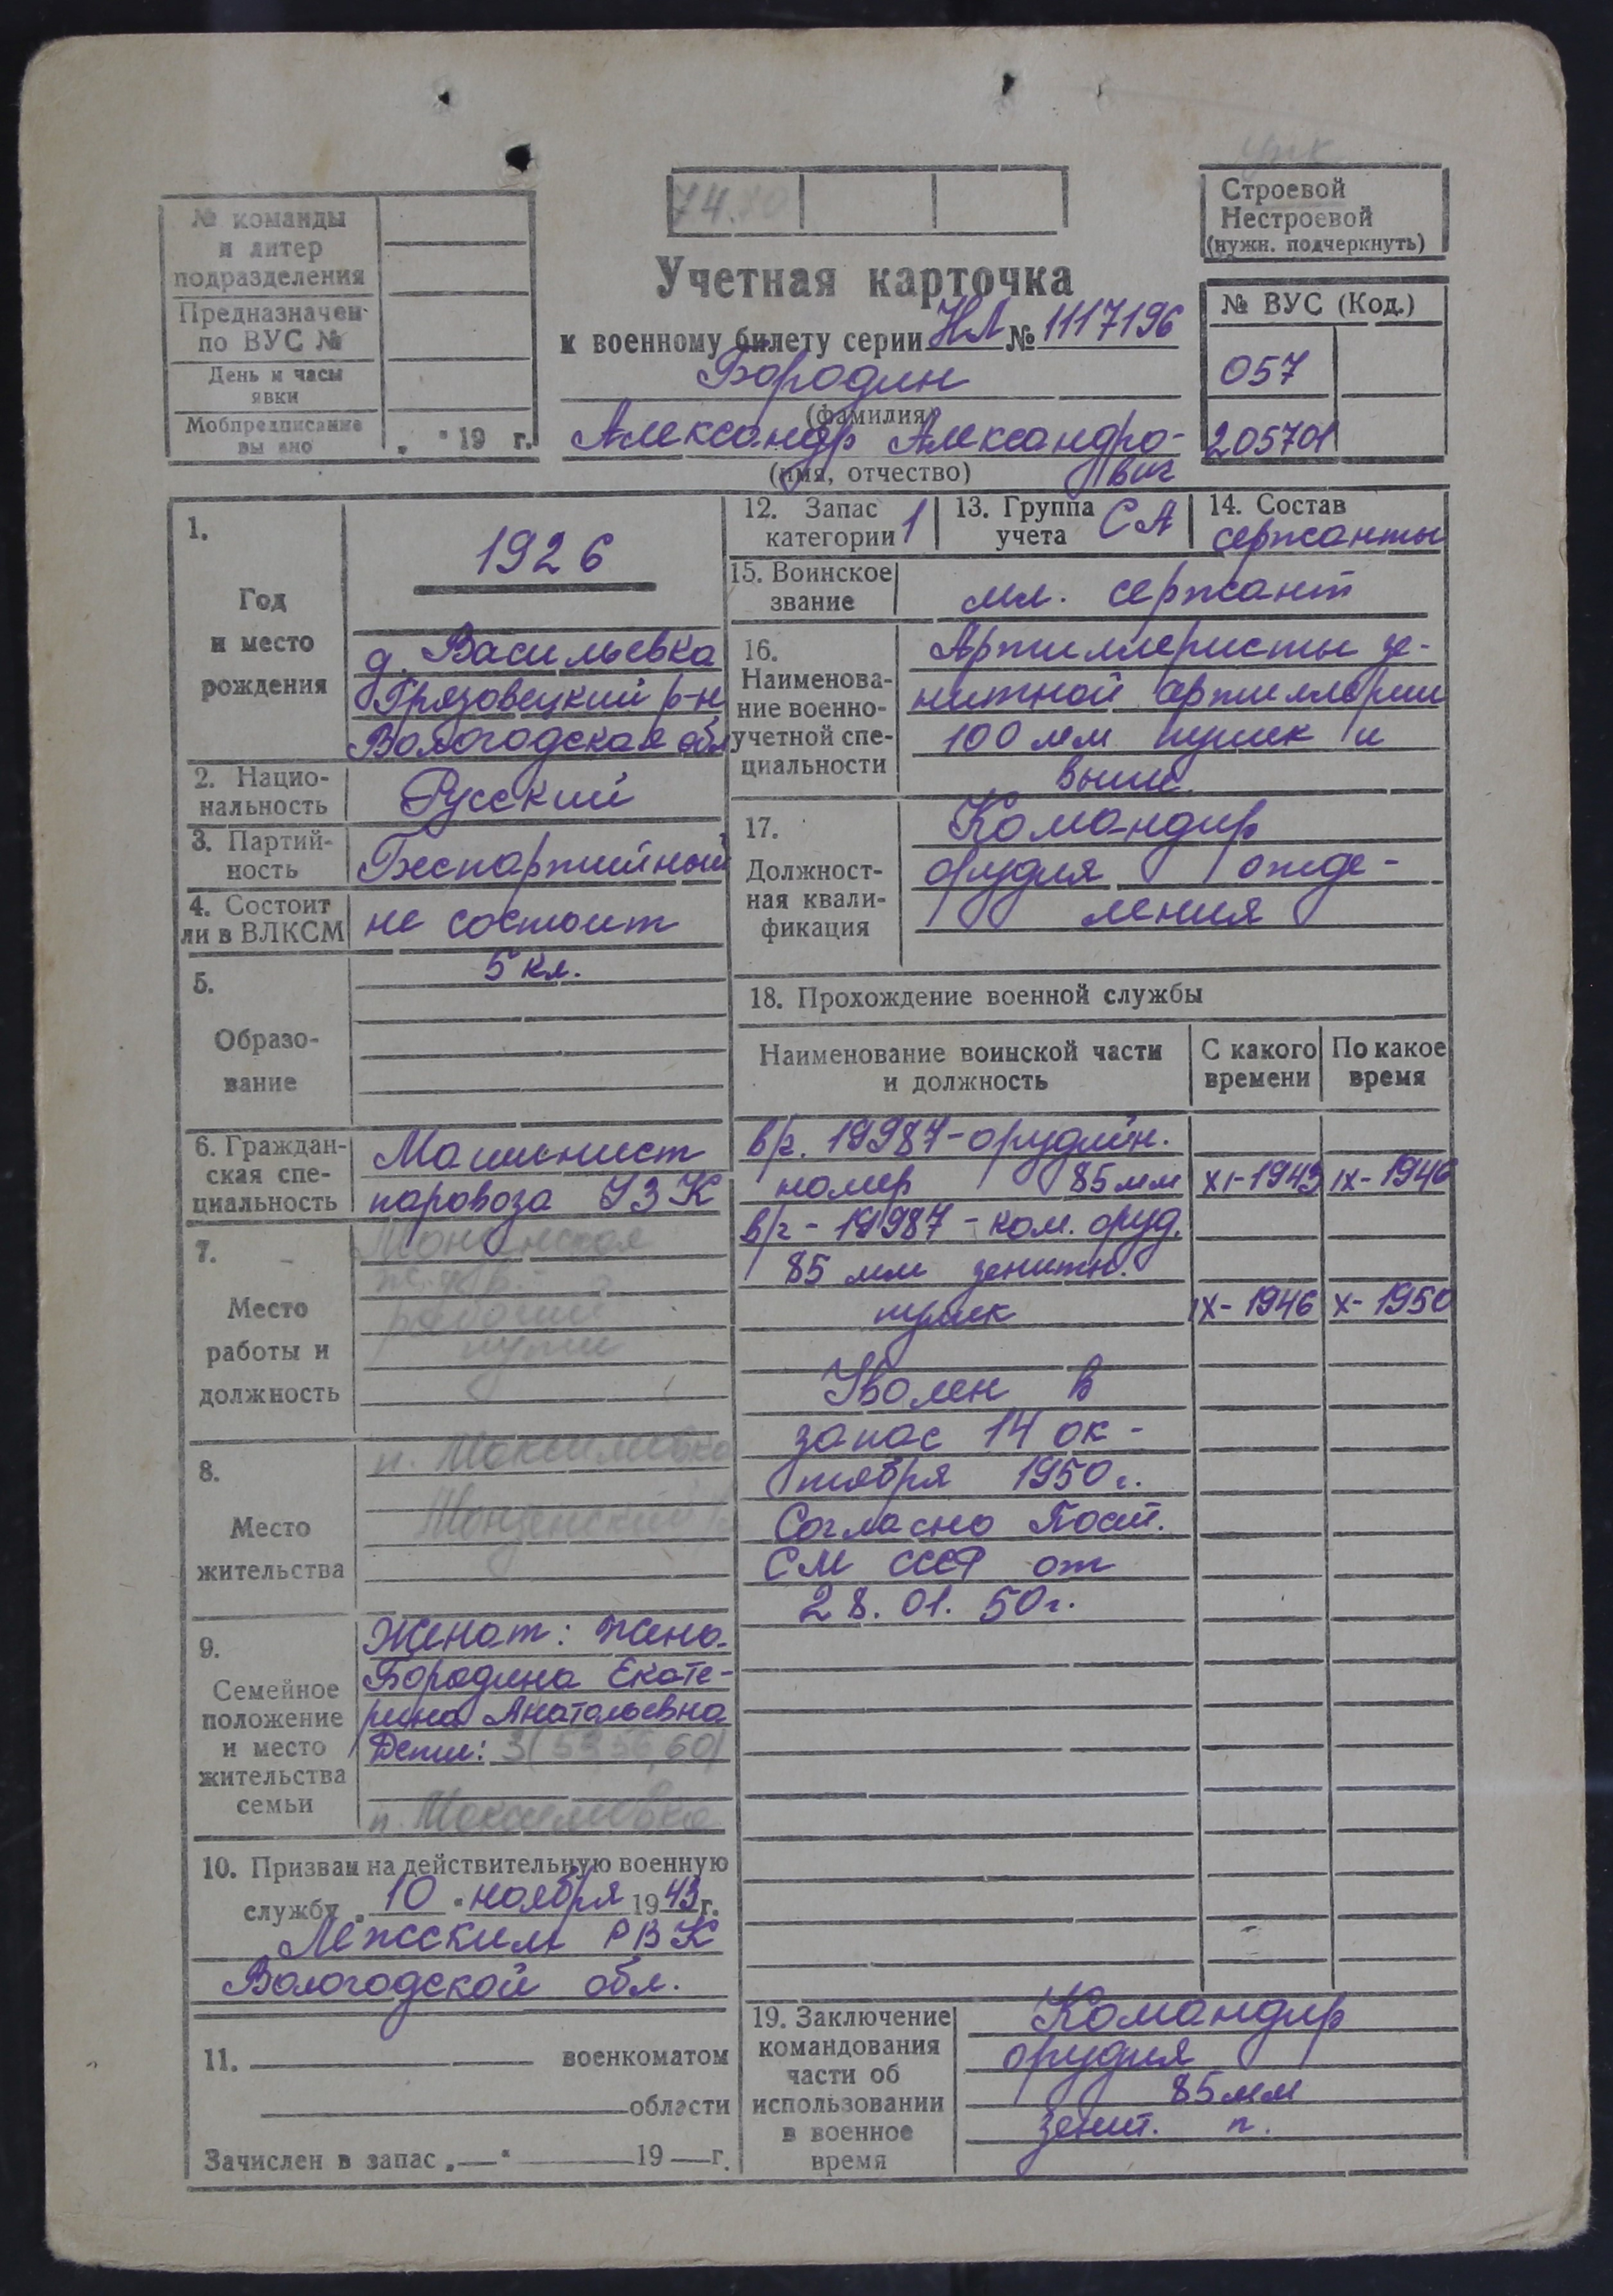 № команды
и литер
подразделения
Предназначен
по ВУС №
День и часы
явки
Мобпредписание
вы но
„ " 19 г.
74.
Учетная карточка
к военному билету серии НЛ № 1117196
Бородин
(фамилия)
Александр Александро-
вич
(имя, отчество)
Строевой
Нестроевой
(нужн. подчеркнуть)
№ ВУС (Код.)
057
205701
1.
Год
и место
рождения
1926
д. Васильевка
Грязовецкий р-н
Вологодская обл
2. Нацио-
нальность
Русский
3. Партий-
ность
Беспартийный
4. Состоит
ли в ВЛКСМ
не состоит
5.
Образо-
вание
5 кл.
6. Граждан-
ская спе-
циальность
Машинист
паровоза УЗК
7.
Место
работы и
должность
Монзенская
рабочий
пути
8.
Место
жительства
п. Максимовка
Монзенский
9.
Семейное
положение
и место
жительства
семьи
Женат: жена
Бородина Екате-
рина Анатольевна
Дети: 3 (53, 56, 60)
п. Максимовка
10. Призван на действительную военную
службу „ 10 " ноября 1943 г.
Лежским РВК
Вологодской обл.
11. военкоматом
области
Зачислен в запас „—" 19 — г.
12. Запас
категории 1
13. Группа
учета СА
14. Состав
сержанты
15. Воинское
звание
мл. сержант
16.
Наименова-
ние военно-
учетной спе-
циальности
Артиллеристы зе-
нитной артиллерии
100 мм пушек и
выше.
17.
Должност-
ная квали-
фикация
Командир
орудия отде-
ления
18. Прохождение военной службы
Наименование воинской части
и должность
С какого
времени
По какое
время
в/ч. 19987-орудийн.
номер 85 мм XI-1943 IX-1946
в/ч - 19987 - ком. оруд.
85 мм зенитн.
пушек IX-1946 X-1950
Уволен в
запас 14 ок-
тября 1950 г.
Согласно Пост.
СМ СССР от
28. 01. 50 г.
19. Заключение
командования
части об
использовании
в военное
время
Командир
орудия
85 мм
зенит. п.